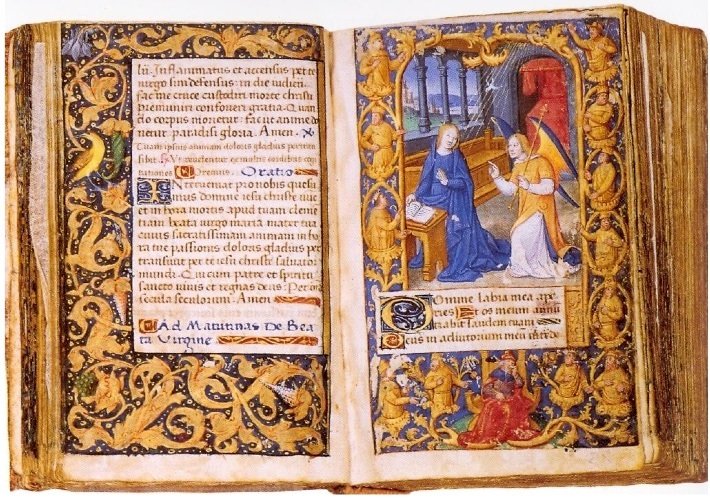 lu. Inflamatus et accensus per te
virgo sim defensus: in die iudicii.
fac me cruce custodiri morte christi
premuniri confoveri gratia. Quan
do corpus morietur: fac ut anime do
netur paradisi gloria. Amen.
Tuam ipsius animam doloris gladius pertran
sibit.
Oremus. Oratio
Interveniat pro nobis quesu
mus domine iesu christe nunc
et in hora mortis apud tuam cleme
tiam beata virgo maria mater tua
cuius sacratissimam animam in ho
ra tue passionis doloris gladius per
transivit per te iesu christe salvator
mundi. Qui cum patre et spiritu
sancto vivis et regnas deus. Per o
secula seculorum. Amen
Ad Matutinas De Bea
ta Virgine
Domine labia mea ape
ries Et os meum annu
ciabit laudem tuam
Deus in adiutorium meu intende